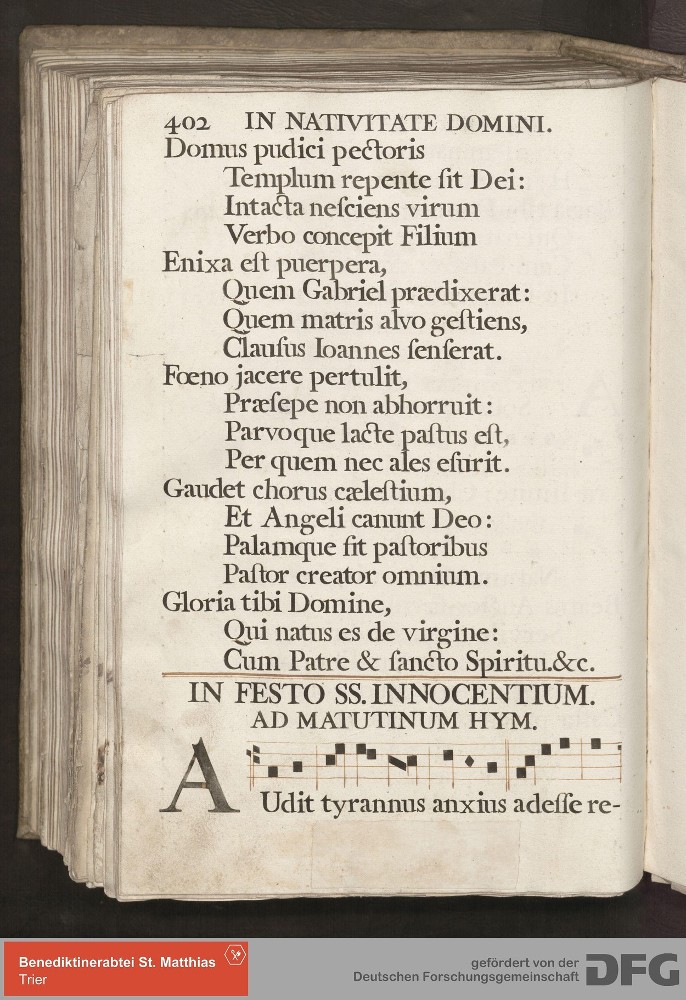 402 IN NATIVITATE DOMINI.
Domus pudici pectoris
Templum repente fit Dei:
Intacta neſciens virum
Verbo concepit Filium
Enixa eſt puerpera,
Quem Gabriel prædixerat:
Quem matris alvo geſtiens,
Clauſus Ioannes ſenſerat.
Fœno jacere pertulit,
Præſepe non abhorruit:
Parvoque lacte paſtus eſt,
Per quem nec ales eſurit.
Gaudet chorus cæleſtium,
Et Angeli canunt Deo:
Palamque fit paſtoribus
Paſtor creator omnium.
Gloria tibi Domine,
Qui natus es de virgine:
Cum Patre & ſancto Spiritu.&c.
IN FESTO SS. INNOCENTIUM.
AD MATUTINUM HYM.
AUdit tyrannus anxius adeſſe re-
Benediktinerabtei St. Matthias
Trier
gefördert von der
Deutschen Forschungsgemeinschaft DFG